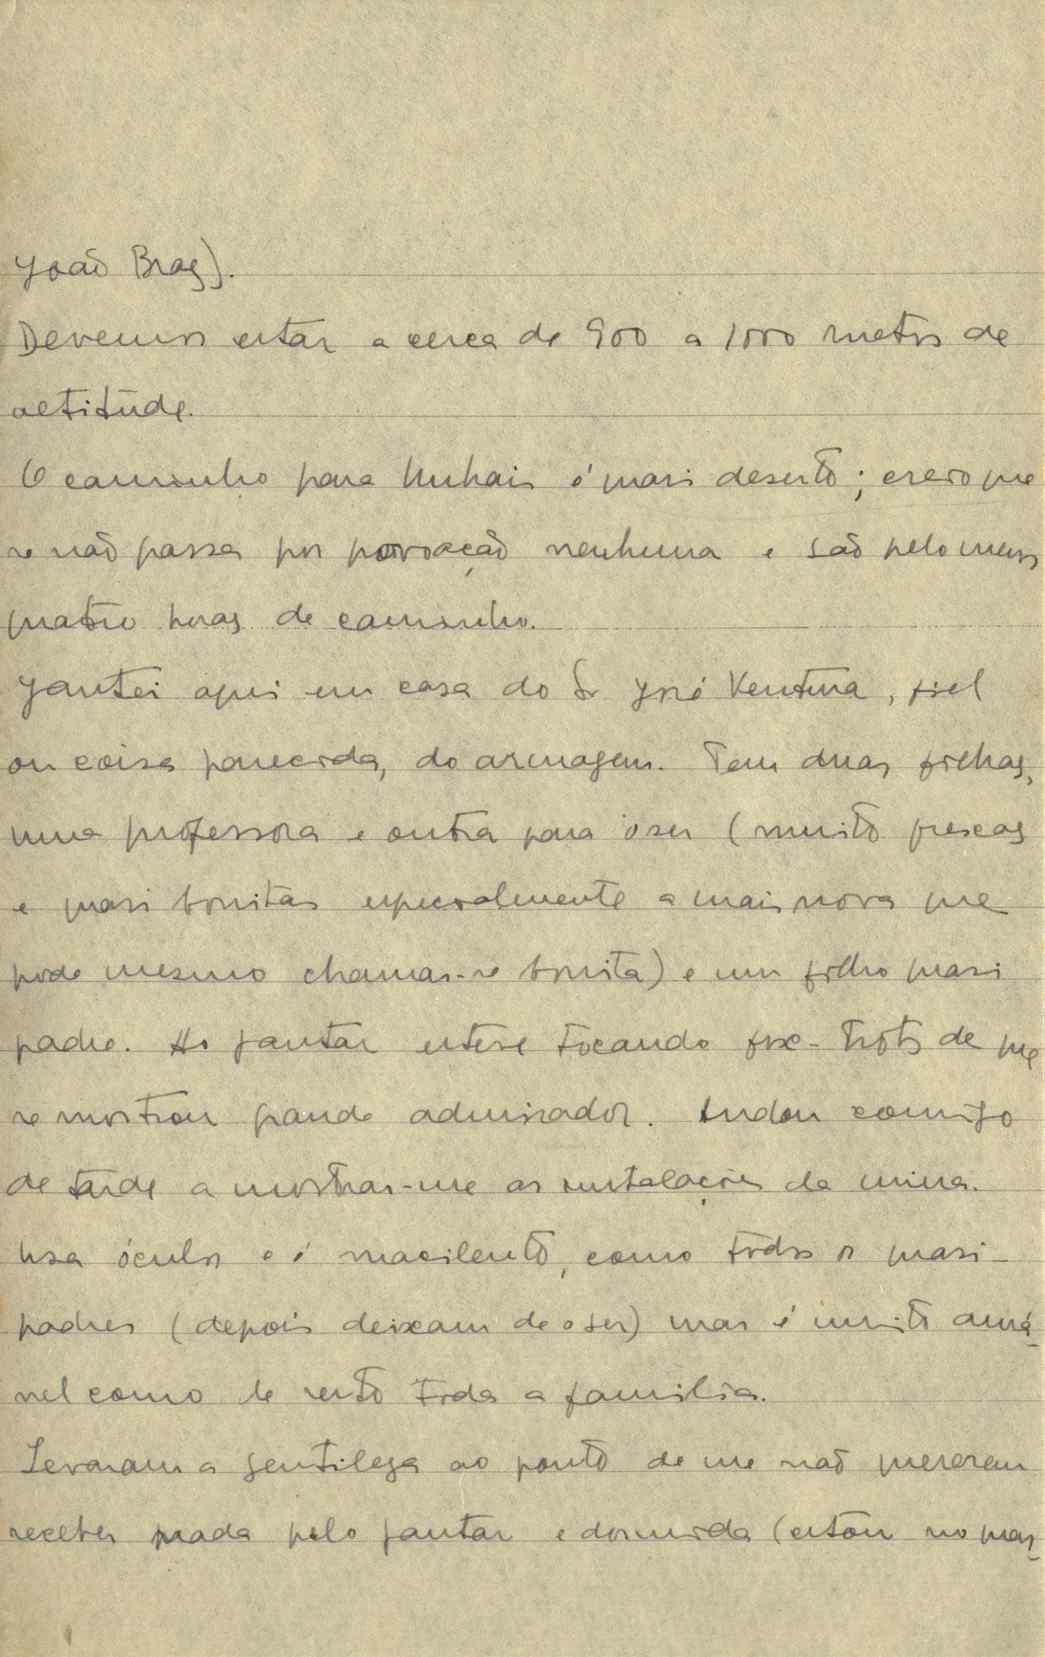 João Braz).
Devemos estar a cerca de 900 a 1000 metros de
altitude.
O caminho para Unhais é quasi deserto; creio que
se não passa por povoação nenhuma e são pelo menos
quatro horas de caminho.
Jantei aqui em casa do Sr José Ventura, fiel
ou coisa parecida, do armazem. Tem duas filhas,
uma professora e outra para o ser (muito frescas
e quasi bonitas especialmente a mais nova que
pode mesmo chamar-se bonita) e um filho quasi
padre. Ao jantar esteve tocando fox-trots de que
se mostrou grande admirador. Andou comigo
de tarde a mostrar-me as instalações da mina.
Usa óculos e é macilento, como todos os quasi-
padres (depois deixam de o ser) mas é muito amá-
vel como de resto toda a familia.
Levaram a gentileza ao ponto de me não quererem
receber nada pelo jantar e dormida (estou no quar-